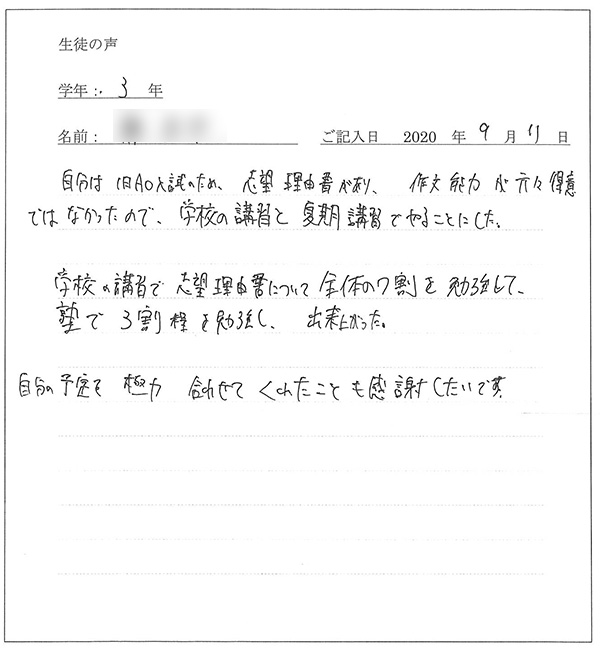 生徒の声
学年: 3 年
名前: ご記入日 2020 年 9 月 11 日
自分は 旧AO入試のため、志望理由書があり、作文能力が元々得意
ではなかったので、学校の講習と夏期講習でやることにした。
学校の講習で志望理由書について全体の7割を勉強して、
塾で3割程を勉強し、出来上がった。
自分の予定を極力合わせてくれたことも感謝したいです。